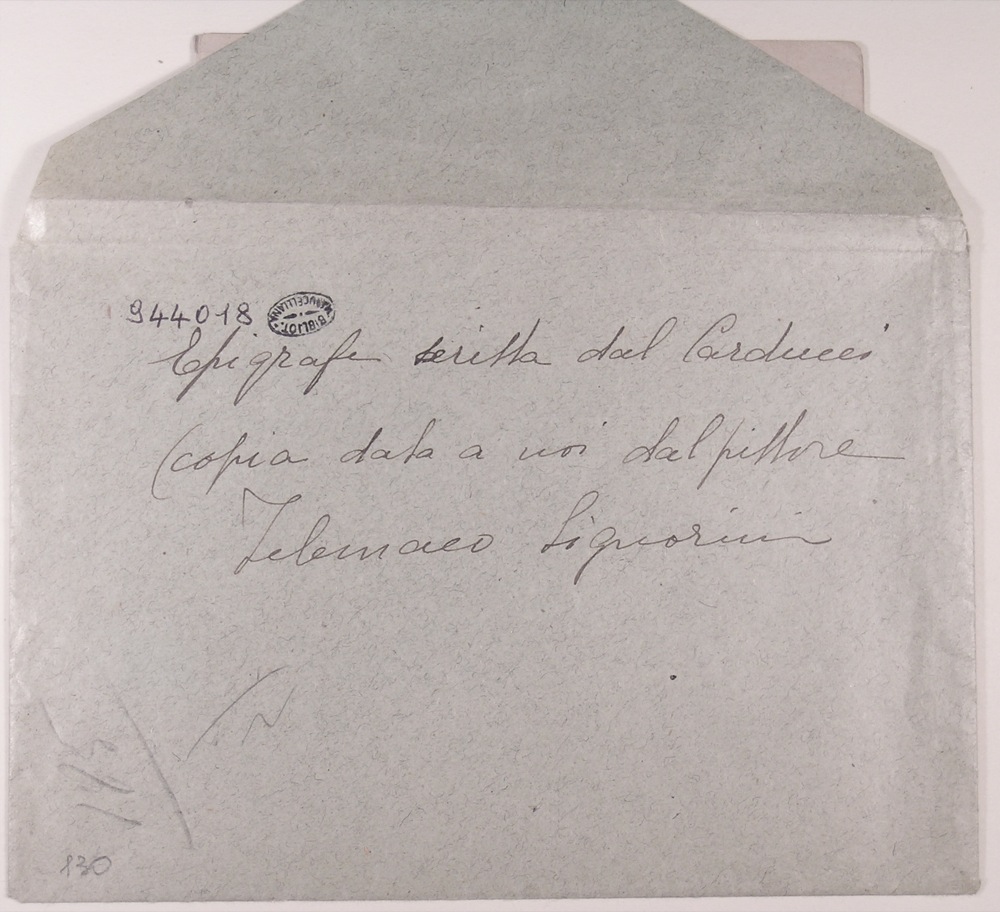 944018 BIBLIOT. MARUCELLIANA
Epigrafe scritta dal Carducci
(copia data a noi dal pittore
Telemaco Signorini
130